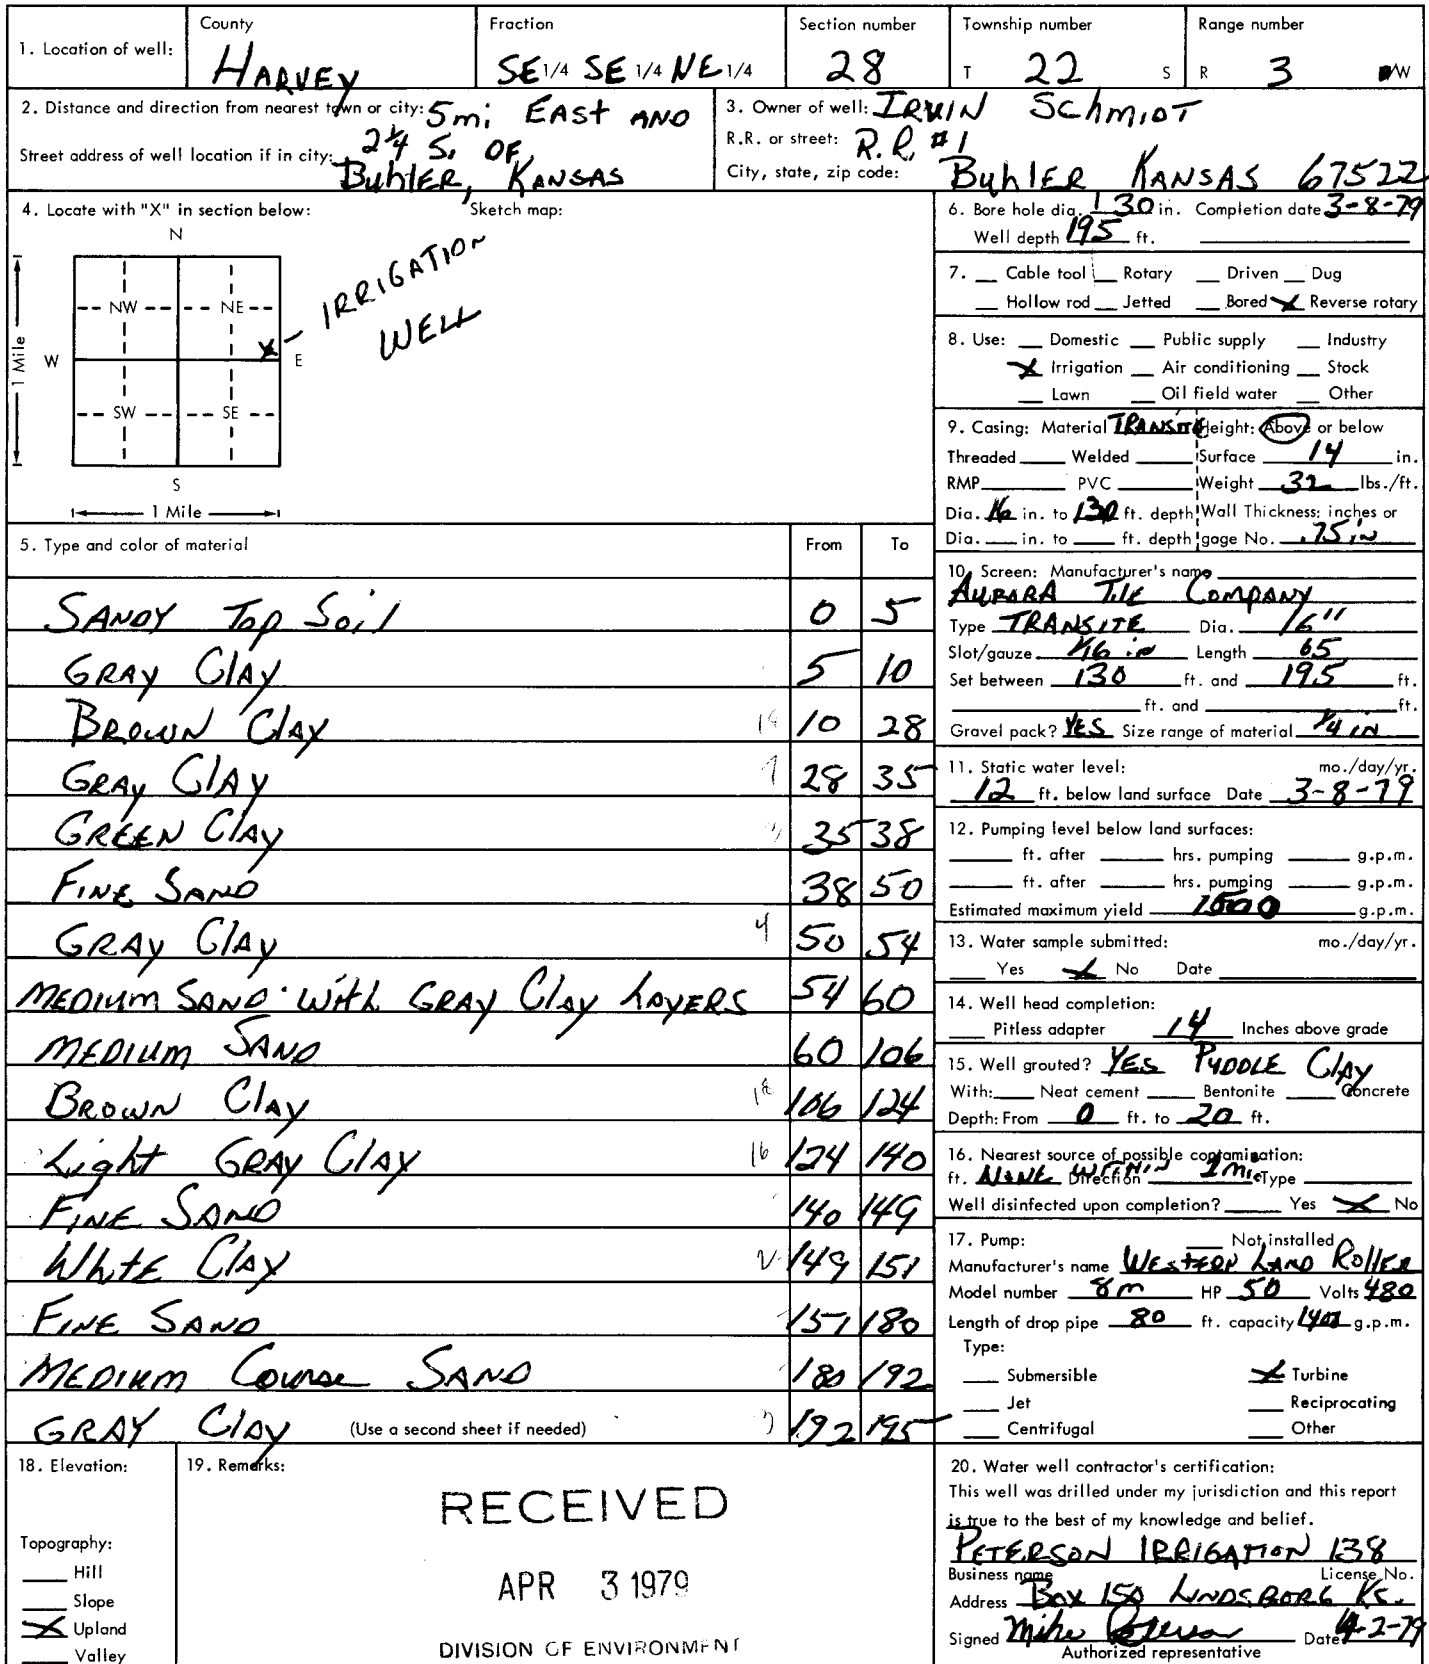 1. Location of well: County HARVEY Fraction SE 1/4 SE 1/4 NE 1/4 Section number 28 Township number T 22 S Range number R 3 W
2. Distance and direction from nearest town or city: 5 mi EAST AND
Street address of well location if in city: 2 1/4 S. OF
Buhler, KANSAS
3. Owner of well: IRVIN Schmidt
R.R. or street: R.R. #1
City, state, zip code: Buhler KANSAS 67522
4. Locate with "X" in section below: Sketch map:
N
NW NE
W X E
SW SE
S
1 Mile
1 Mile
IRRIGATION
WELL
5. Type and color of material From To
SANDY Top Soil 0 5
GRAY Clay 5 10
BROWN Clay 10 28
GRAY Clay 7 28 35
GREEN Clay 35 38
FINE SAND 38 50
GRAY Clay 4 50 54
MEDIUM SAND With GRAY Clay LAYERS 54 60
MEDIUM SAND 60 106
BROWN Clay 18 106 124
Light GRAY Clay 16 124 140
FINE SAND 140 149
White Clay 2 149 151
FINE SAND 151 180
MEDIUM Course SAND 180 192
GRAY Clay (Use a second sheet if needed) 3 192 195
6. Bore hole dia. 30 in. Completion date 3-8-79
Well depth 195 ft.
7. Cable tool Rotary Driven Dug
Hollow rod Jetted Bored X Reverse rotary
8. Use: Domestic Public supply Industry
X Irrigation Air conditioning Stock
Lawn Oil field water Other
9. Casing: Material TRANSITE Height: Above or below
Threaded Welded Surface 14 in.
RMP PVC Weight 32 lbs./ft.
Dia. 16 in. to 130 ft. depth Wall Thickness: inches or
Dia. in. to ft. depth gage No. .75 in
10. Screen: Manufacturer's name
AURORA Tile COMPANY
Type TRANSITE Dia. 16"
Slot/gauze 1/16 in Length 65
Set between 130 ft. and 195 ft.
ft. and ft.
Gravel pack? YES Size range of material 1/4 in
11. Static water level: mo./day/yr.
12 ft. below land surface Date 3-8-79
12. Pumping level below land surfaces:
ft. after hrs. pumping g.p.m.
ft. after hrs. pumping g.p.m.
Estimated maximum yield 1500 g.p.m.
13. Water sample submitted: mo./day/yr.
Yes X No Date
14. Well head completion:
Pitless adapter 14 Inches above grade
15. Well grouted? YES PUDDLE Clay
With: Neat cement Bentonite Concrete
Depth: From 0 ft. to 20 ft.
16. Nearest source of possible contamination:
ft. NONE WITHIN Direction 1 mi. Type
Well disinfected upon completion? Yes X No
17. Pump: Not installed
Manufacturer's name WESTERN LAND ROLLER
Model number 8m HP 50 Volts 480
Length of drop pipe 80 ft. capacity g.p.m.
Type:
Submersible X Turbine
Jet Reciprocating
Centrifugal Other
18. Elevation:
Topography:
Hill
Slope
X Upland
Valley
19. Remarks:
RECEIVED
APR 3 1979
DIVISION OF ENVIRONMENT
20. Water well contractor's certification:
This well was drilled under my jurisdiction and this report
is true to the best of my knowledge and belief.
PETERSON IRRIGATION 138
Business name License No.
Address Box 150 LINDSBORG Ks.
Signed Mike Peterson Date 4-2-79
Authorized representative